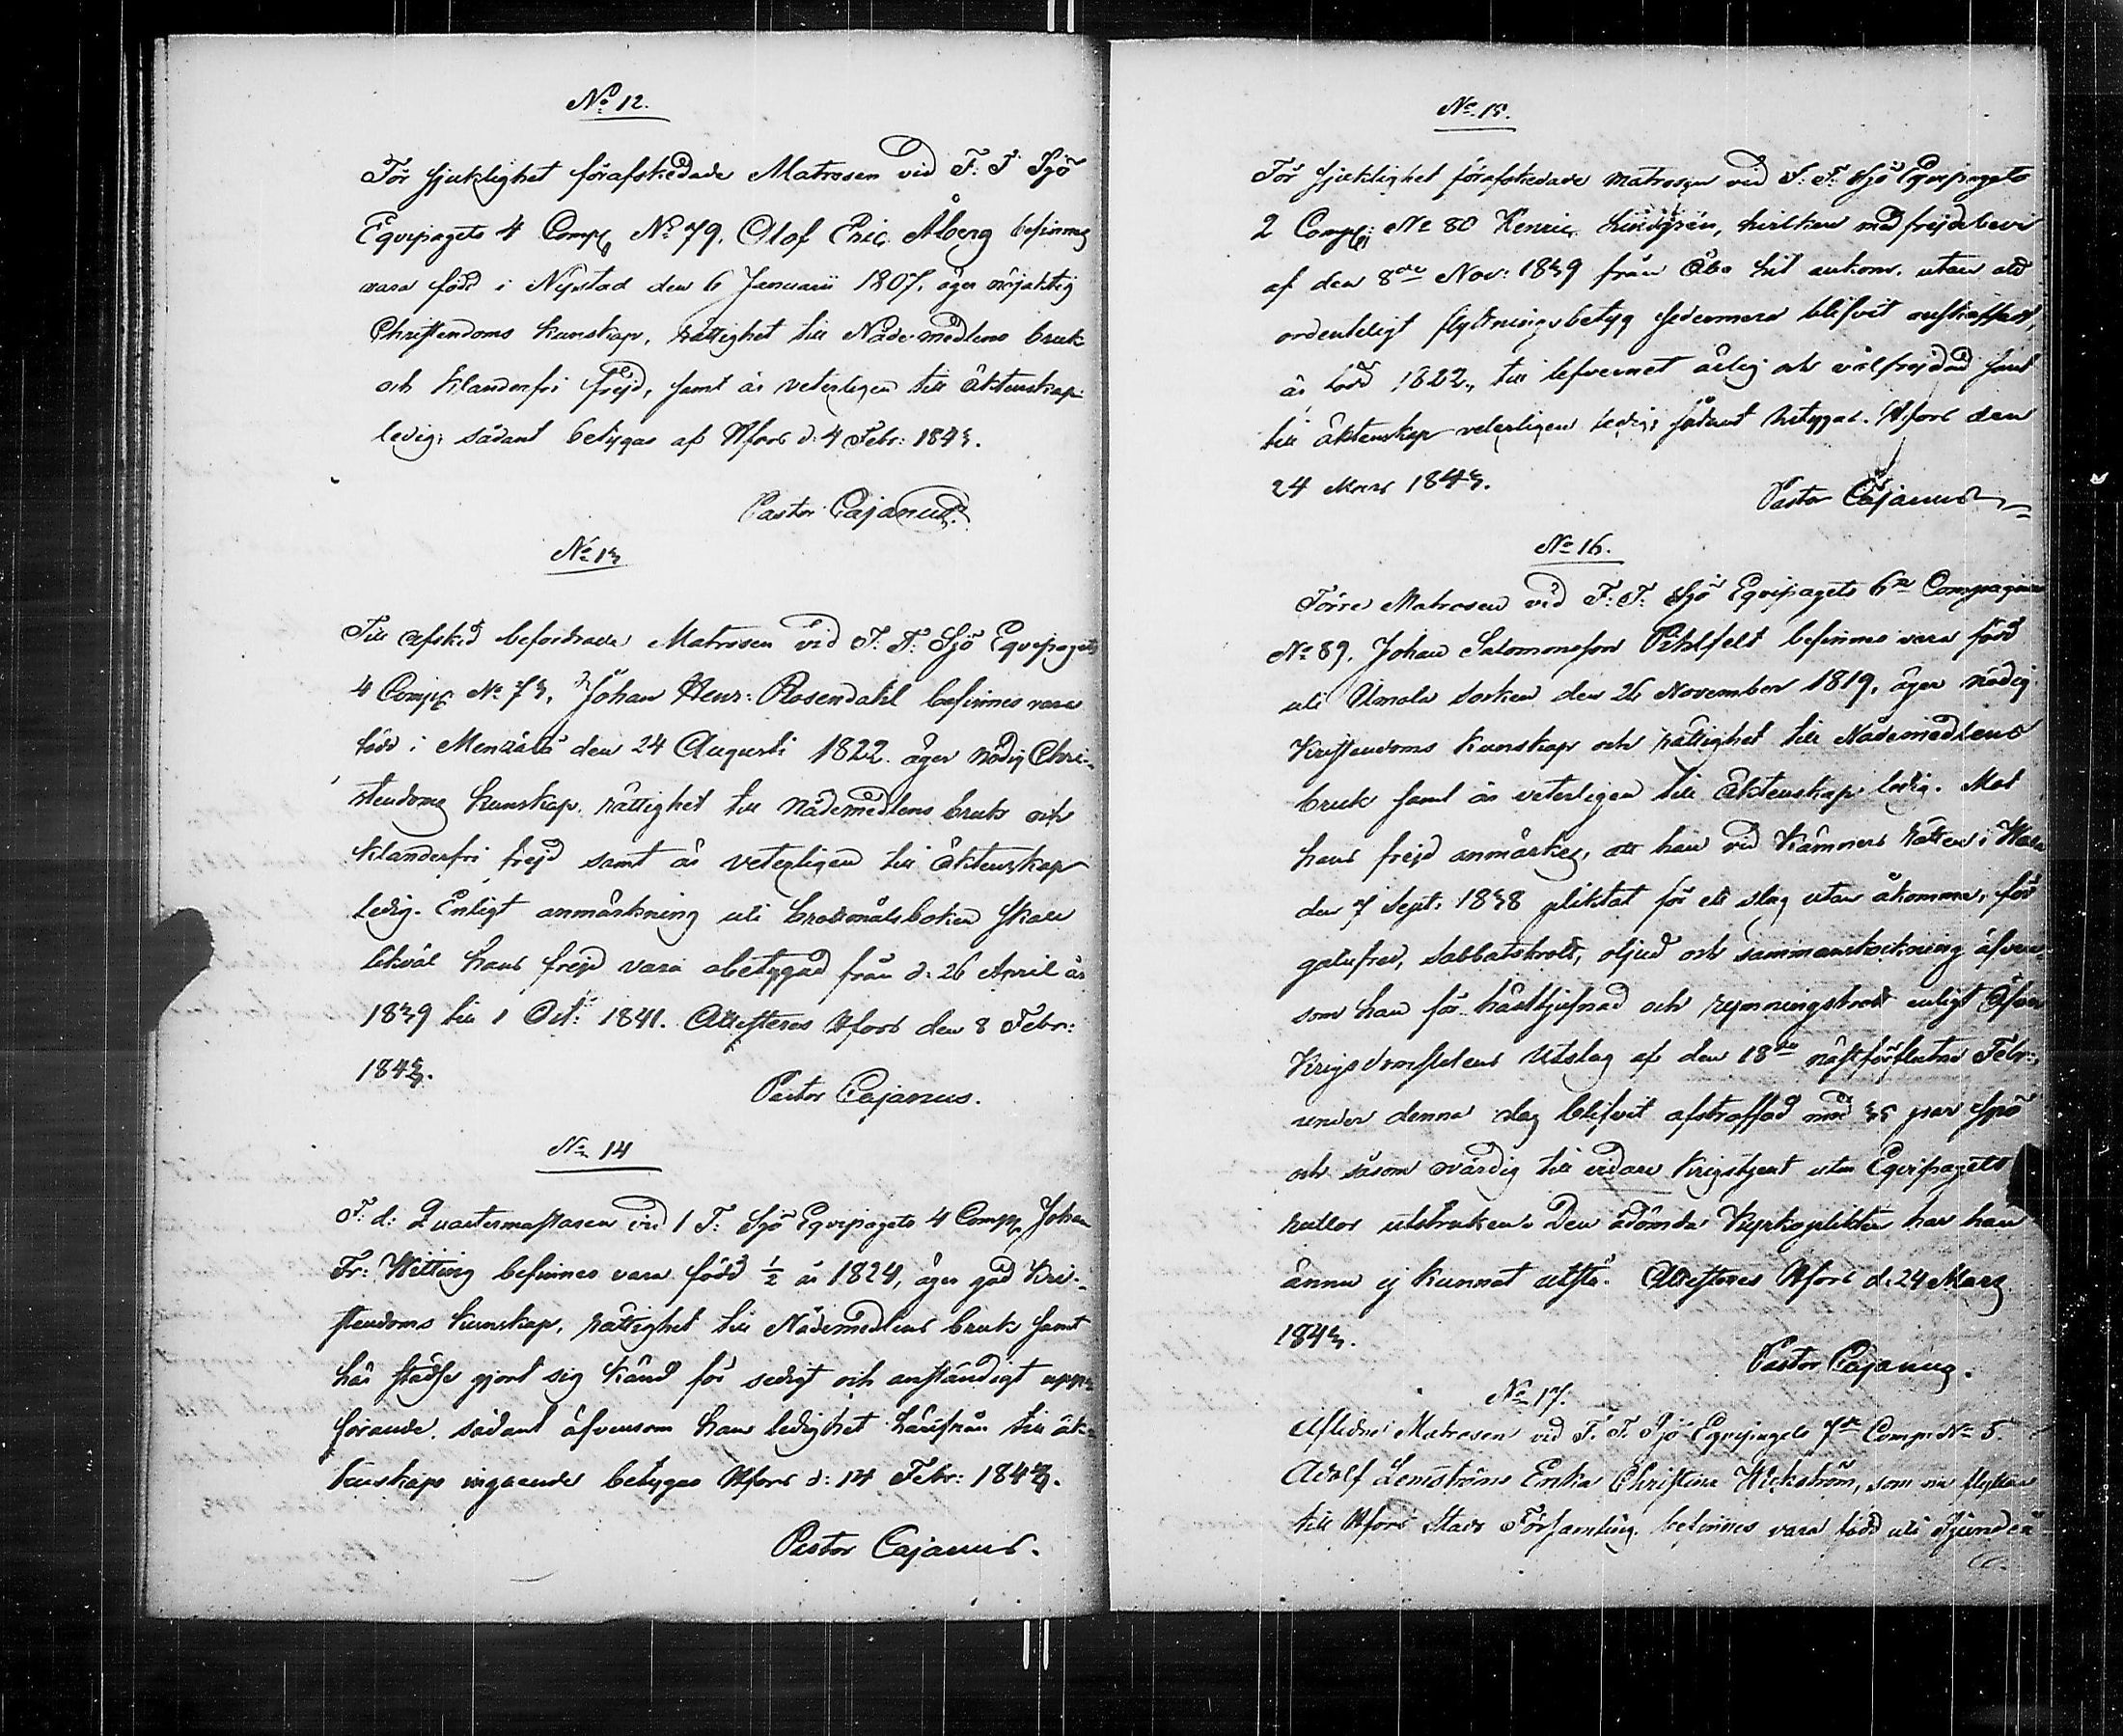 No 12.
För sjuklighet förafskedade Matrosen vid F: F Sjö
Eqvipagets 4 Comp: No 79. Olof Eric Åberg befinnes
vara född i Nystad den 6 Januarii 1807, äger nöjaktig
Christendoms kunskap, rättighet till Nådemedlens bruk
och klanderfri frejd, samt är veterligen till äktenskap
ledig; sådant betygas af Hfors d: 4 Febr: 1843.
Pastor Cajanus.
No 13
Till afsked befordrade Matrosen vid F: F: Sjö Eqvipagets
4 Comp: No 73, Johan Henr: Rosendahl befinnes vara
född i Menzälä den 24 Augusti 1822. äger nödig Chri-
stendoms kunskap, rättighet till nådemedlens bruk och
klanderfri frejd samt är veterligen till äktenskap
ledig. Enligt anmärkning uti brottmålsboken skall
likväl hans frejd vara obetygad från d: 26 April år
1839 till 1 Oct: 1841. Attesteras Hfors den 8 Febr:
1843.
Pastor Cajanus.
No 14
F: d: Quartermästaren vid 1 F: Sjö Eqvipagets 4 Comp: Johan
Fr: Witting befinnes vara född ½ år 1824, äger god Kri-
stendoms kunskap, rättighet till Nådemedlens bruk samt
här städse gjort sig känd för sedigt och anständigt upp-
förande. sådant äfvensom hans ledighet härifrån till äk-
tenskaps ingående betygas Hfors d: 14 Febr: 1843.
Pastor Cajanus.
No. 15.
För sjuklighet förafskedade matrosen vid F: F: Sjö Eqvipagets
2 Comp: No 80 Henric Lindgrén, hvilken med frejdebevis
af den 8de Nov: 1839 från Åbo hit ankom, utan att
ordentligt flyttningsbetyg sedermera blifvit anskaffadt,
är född 1822, till lefvernet ärlig och välfrejdad samt
till äktenskap veterligen ledig; sådant betygas. Hfors den
24 Mars 1843.
Pastor Cajanus
No 16.
Förre Matrosen vid F: F: Sjö Eqvipagets 6te Compagnie
No 89. Johan Salomonsson Pihlfelt befinnes vara född
uti Ulmala socken den 26 November 1819, äger nödig
Kristendoms kunskap och rättighet till Nådemedlens
bruk samt är veterligen till äktenskap ledig. Mot
hans frejd anmärkes, att han vid Kämners Rätten i Wasa
den 7 Sept: 1838 pliktat för ett slag utan åkomma, för
gatufred, sabbatsbrott, oljud och sammanskockning äfven-
som han för hästtjufnad och rymningsbrott enligt Öfver
Krigsdomstolens Utslag af den 18de nästförflutne Febr:
under denna dag blifvit afstraffad med 35 par spö
och såsom ovärdig till vidare Krigstjenst utur Eqvipagets
rullor utstruken. Den ådömda Kyrkoplikten har han
ännu ej kunnat utstå. Attesteras Hfors d. 24 Mars
1843.
Pastor Cajanus.
No 17.
Aflidne Matrosen vid F. F. Sjö Eqvipagets 7de Comp: No 5.
Adolf Lemströms Enka Christina Wickström, som nu flyttar
till Hfors Stads Församling befinnes vara född uti Sjundeå